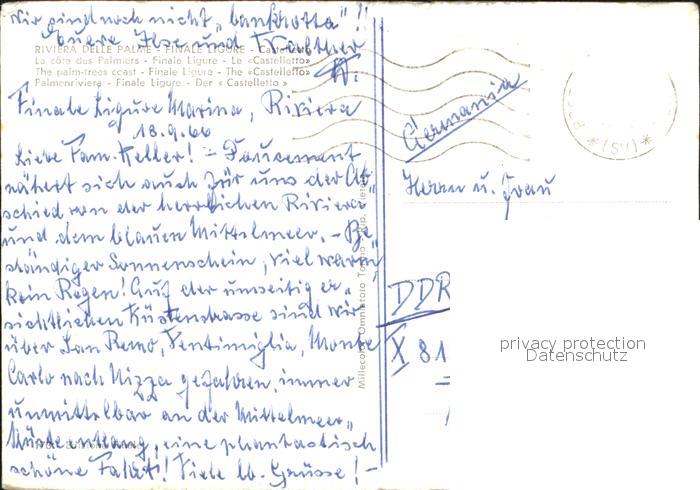 wir sind noch nicht „bankrotta"!!
Euere Ilse und Walther
RIVIERA DELLE PALME - FINALE LIGURE - Castelletto
La côte des Palmiers - Finale Ligure - Le «Castelletto»
The palm-trees coast - Finale Ligure - The «Castelletto»
Palmenriviera - Finale Ligure - Der «Castelletto»
Finale Ligure Marina, Riviera
18.9.66
Liebe Fam. Keller! - 
nähert sich auch für uns der Ab„
schied von der herrlichen Riviera
und dem blauen Mittelmeer. - Be„
ständiger Sonnenschein, viel warm,
kein Regen! Auf der umseitig er„
sichtlichen Küstenstrasse sind wir
über San Remo, Ventimiglia, Monte
Carlo nach Nizza gefahren, immer
unmittelbar an der Mittelmeer„
küste entlang, eine phantastisch
schöne Fahrt! Viele lb. Grüsse! -
Germania
Herrn u. Frau
DDR
X 81
(SV)
privacy protection
Datenschutz